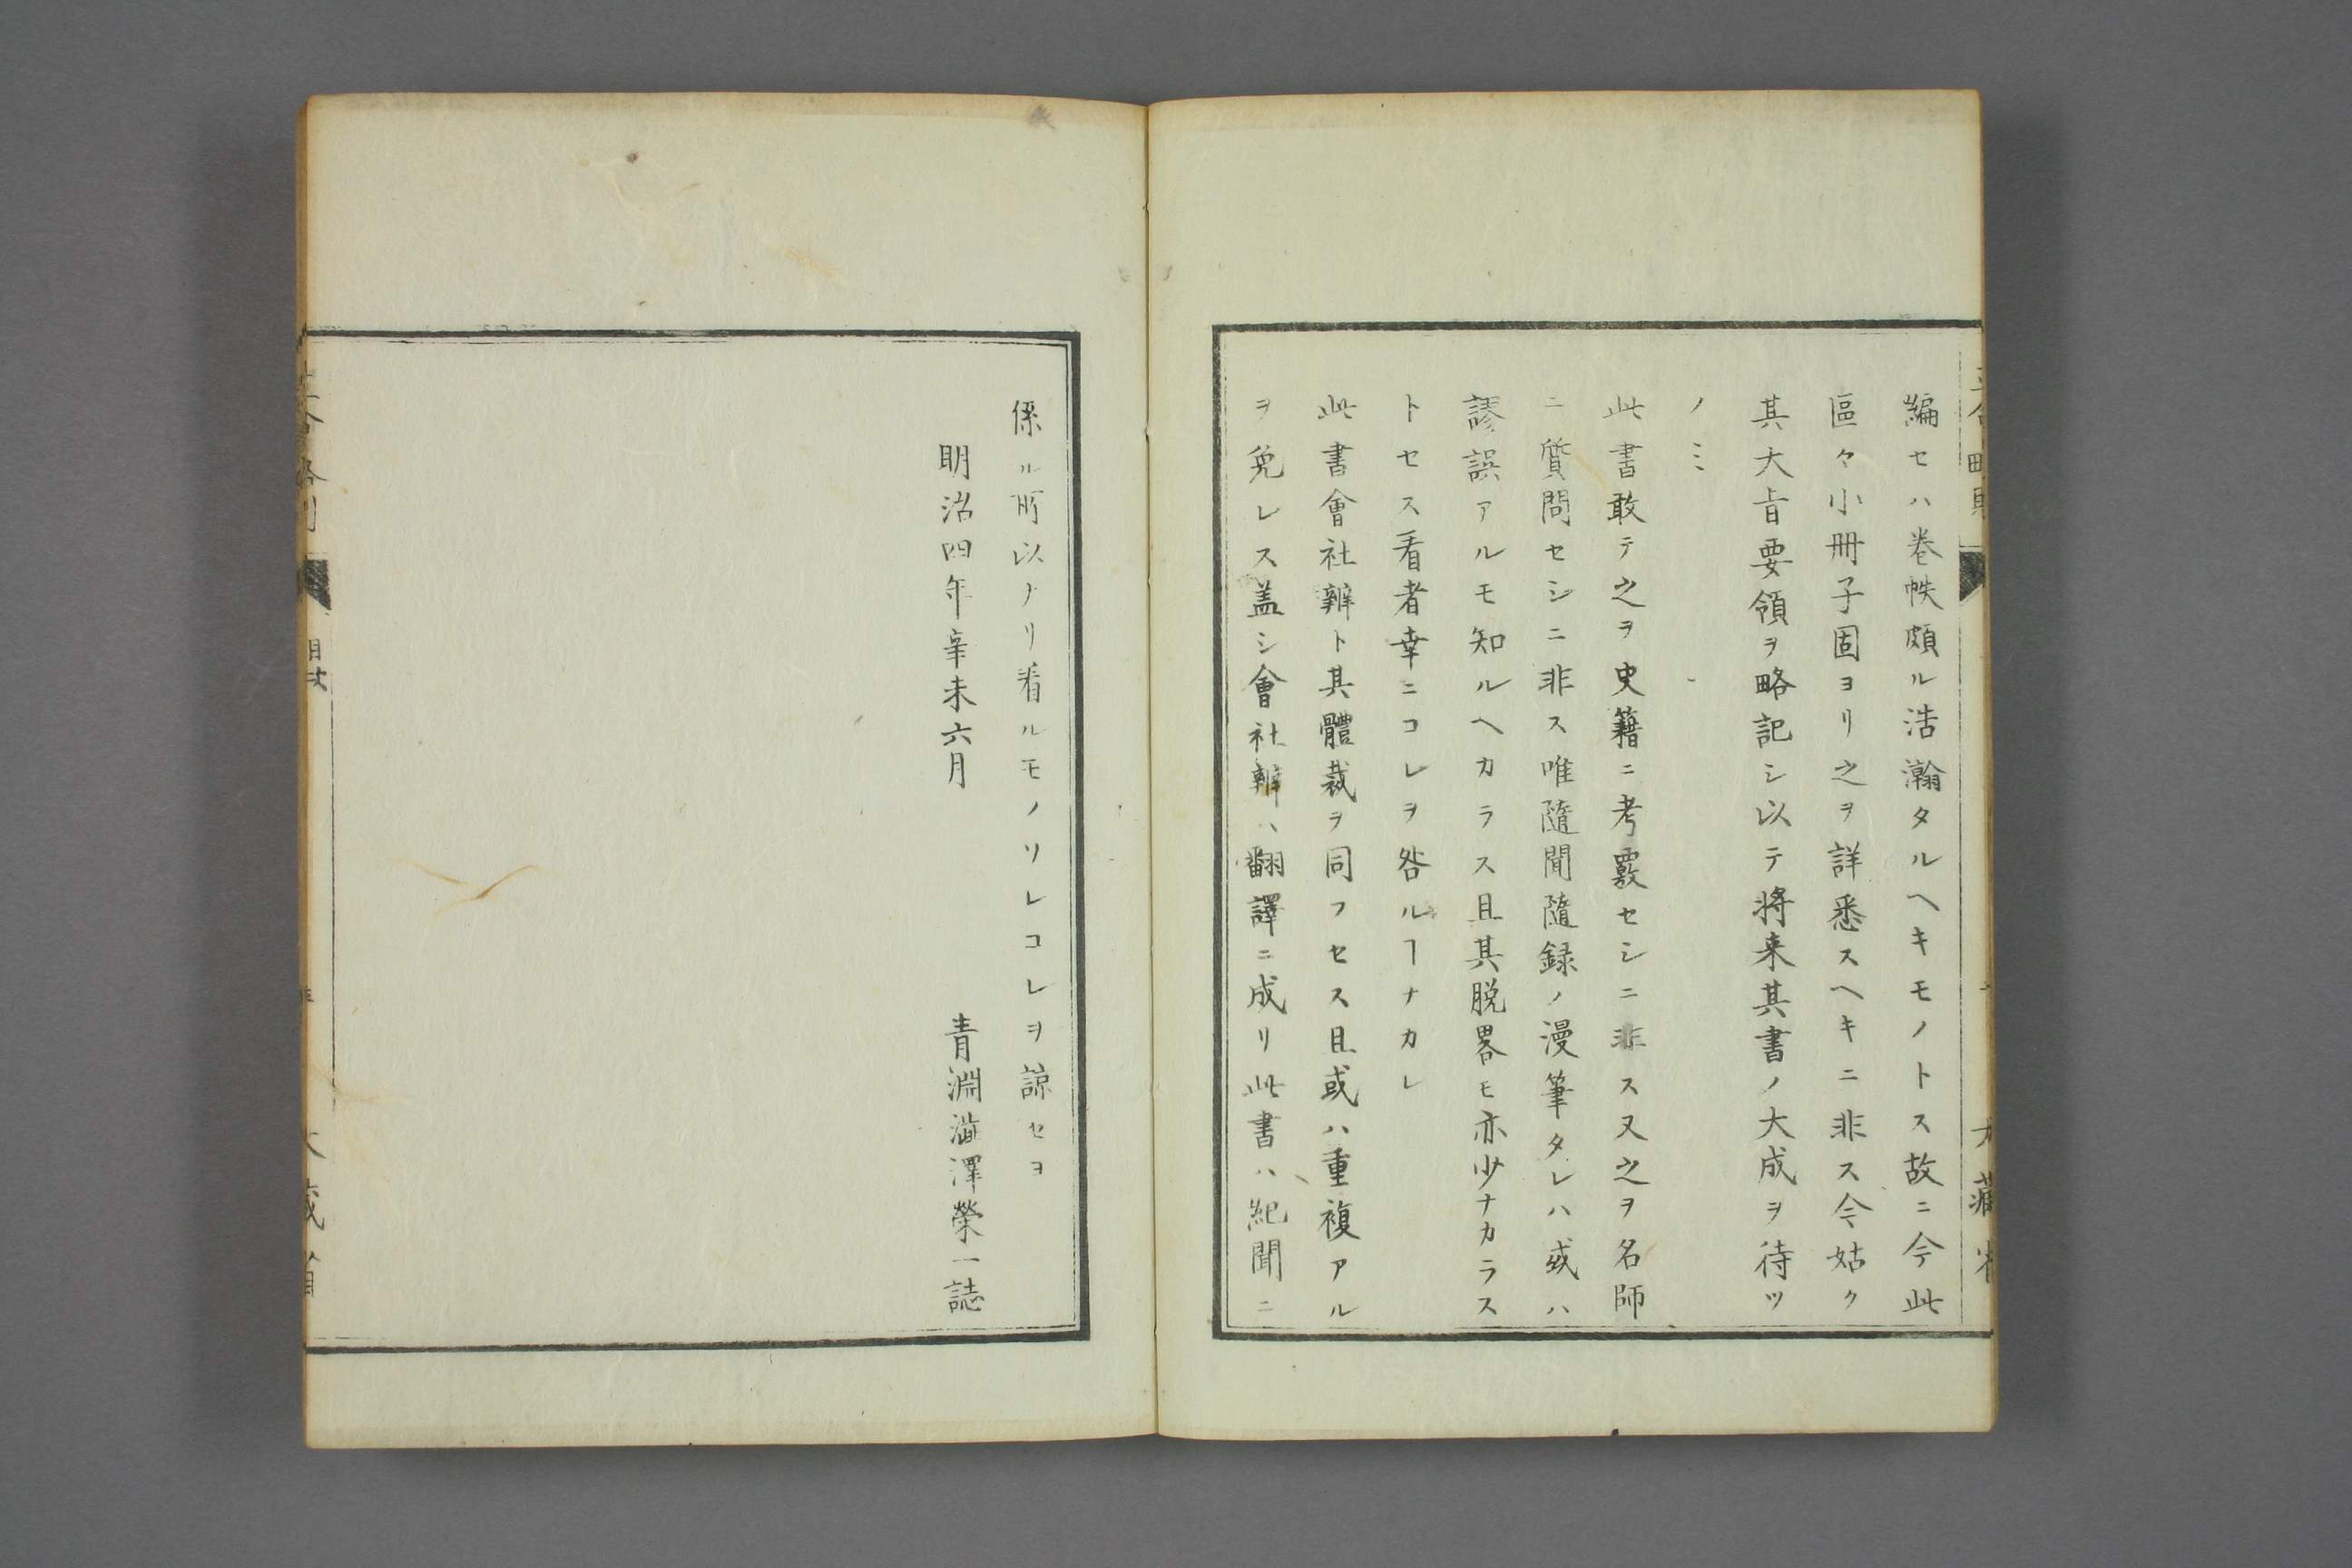 編セハ卷帙頗ル浩瀚タルヘキモノトス故ニ今此
區々小冊子固ヨリ之ヲ詳悉スヘキニ非ス今姑ク
其大旨要領ヲ略記シ以テ將来其書ノ大成ヲ待ツ
ノミ
此書敢テ之ヲ史籍ニ考覈セシニ非ス又之ヲ名師
ニ質問セシニ非ス唯隨聞隨録ノ漫筆タレハ或ハ
謬誤アルモ知ルヘカラス且其脱畧モ亦少ナカラス
トセス看者幸ニコレヲ咎ルヿナカレ
此書會社辨ト其體裁ヲ同フセス且或ハ重複アル
ヲ免レス盖シ會社辨ハ翻譯ニ成リ此書ハ紀聞ニ
係ル所以ナリ看ルモノソレコレヲ諒セヨ
明治四年辛未六月
青淵澁澤榮一誌
目次
大藏省